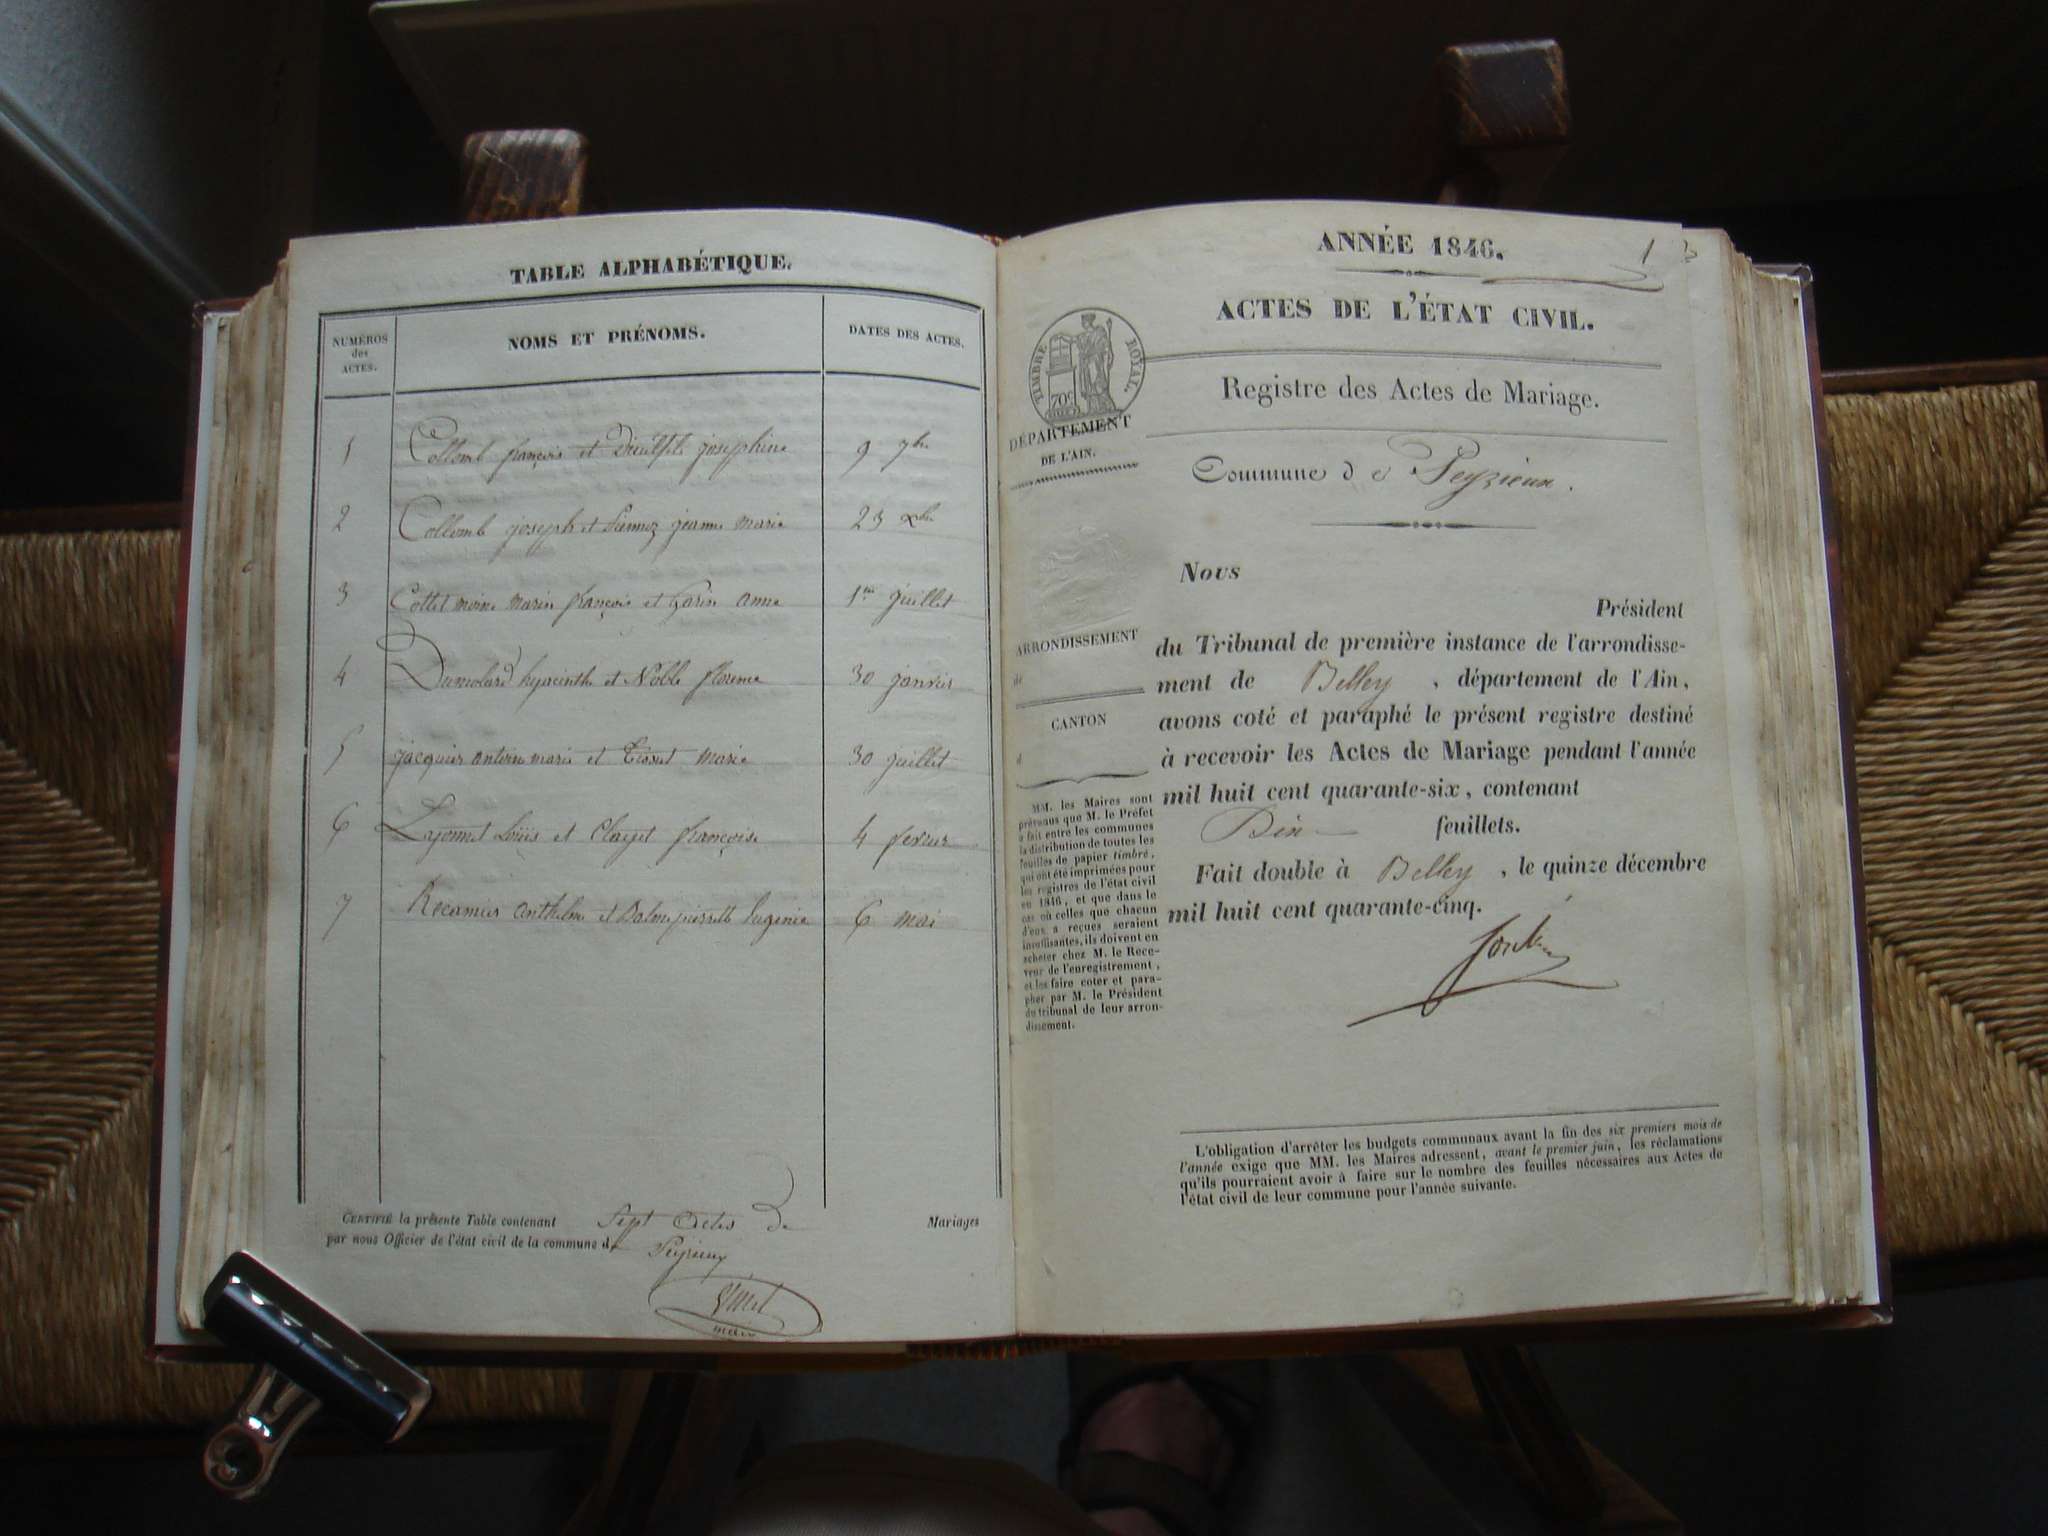 TABLE ALPHABÉTIQUE.
NUMÉROS
des
ACTES.
NOMS ET PRÉNOMS.
DATES DES ACTES.
1 Collomb françois et josephine 9 7bre
2 Collomb joseph et jeanne marie 23 xbre
3 Collet moine marin françois et Garin anne 1er juillet
4 Dumolard hyacinthe et Noble florence 30 janvier
5 jacquier antelm marie et Tissot marie 30 juillet
6 Louis et françoise 4 fevrier
7 Recamier anthelme et Eugenie 6 mai
CERTIFIÉ la présente Table contenant Sept Actes de Mariages
par nous Officier de l'état civil de la commune de Peyzieux
maire
ANNÉE 1846.
1
3
ACTES DE L'ÉTAT CIVIL.
TIMBRE ROYAL.
70c
Registre des Actes de Mariage.
DÉPARTEMENT
DE L'AIN.
Commune de Peyzieux.
Nous
Président
du Tribunal de première instance de l'arrondisse-
ment de Belley, département de l'Ain,
avons coté et paraphé le présent registre destiné
à recevoir les Actes de Mariage pendant l'année
mil huit cent quarante-six, contenant
feuillets.
Fait double à Belley, le quinze décembre
mil huit cent quarante-cinq.
ARRONDISSEMENT
de
CANTON
d
MM. les Maires sont
prévenus que M. le Préfet
a fait entre les communes
la distribution de toutes les
feuilles de papier timbré,
qui ont été imprimées pour
les registres de l'état civil
en 1846, et que dans le
cas où celles que chacun
d'eux a reçues seraient
insuffisantes, ils doivent en
acheter chez M. le Rece-
veur de l'enregistrement,
et les faire coter et para-
pher par M. le Président
du tribunal de leur arron-
dissement.
L'obligation d'arrêter les budgets communaux avant la fin des six premiers mois de
l'année exige que MM. les Maires adressent, avant le premier juin, les réclamations
qu'ils pourraient avoir à faire sur le nombre des feuilles nécessaires aux Actes de
l'état civil de leur commune pour l'année suivante.